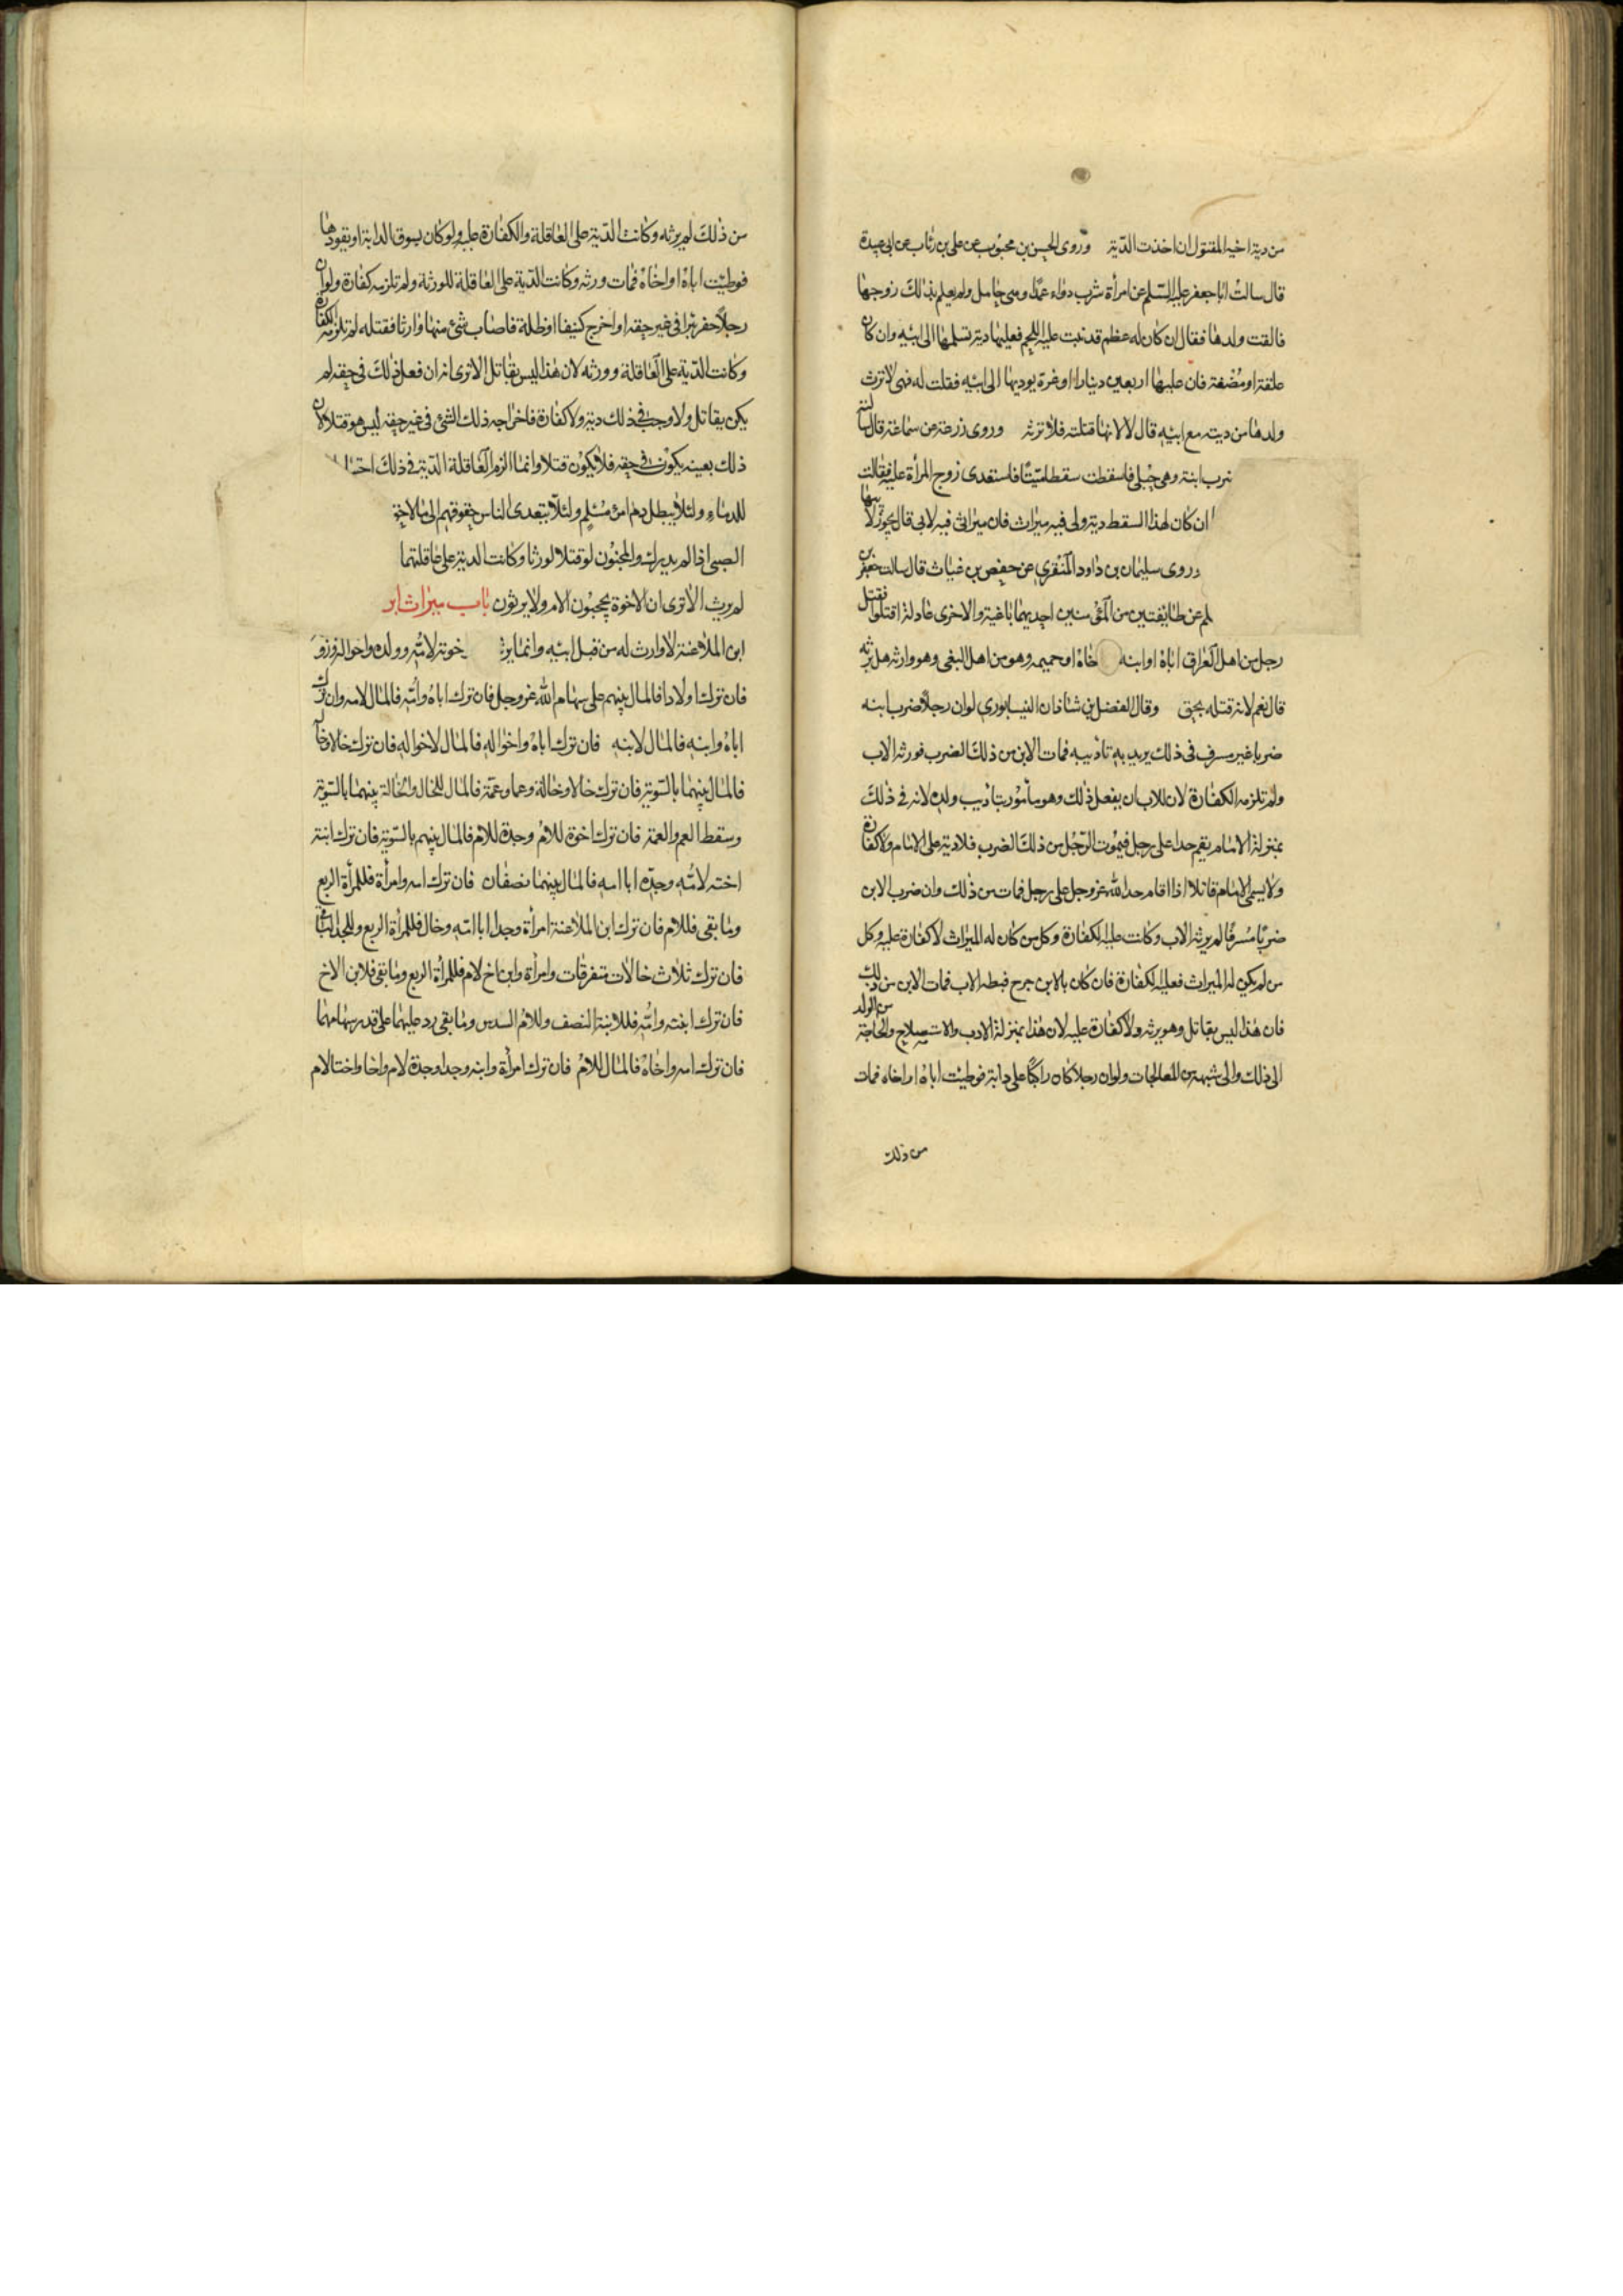 من دية اخيه المقتول ان اخذت الدّية وروى الحسن بن محبوب عن على بن رئاب عن ابى عبيدة
قال سالت ابا جعفر عليه السّلم عن امرأة شرب دواء عمدًا وهى حامل ولم يعلم بذلك زوجها
فالقت ولدها فقال ان كان له عظم قد نبت عليه اللحم فعليها دية تسلمها الى ابيه وان كان
علقة او مُضغة فان عليها اربعين دينارا او غرة يوديها الى ابيه فقلت له فهى لا ترث
ولدها من ديته مع ابيه قال لا لانها قتلته فلا ترثه وروى زرعة عن سماعة قال سالته
ضرب ابنة وهى حبلى فاسقطت سقطا ميّتًا فاستعدى زوج المرأة عليه فقالت
ان كان لهذا السقط دية ولى فيه ميراث فان ميراثى فيه لابى قال يجوز لابيها
وروى سليمان بن داود المنقرى عن حفص بن غياث قال سالت جعفر بن
لم عن طايفتين من المؤمنين احديهما باغية والاخرى عادلة اقتلوا فقتل
رجل من اهل العراق اباه او ابنه خاه او حميمه وهو من اهل البغى وهو وارثه هل يرثه
قال نعم لانه قتله بحق وقال الفضل بن شاذان النيسابورى لو ان رجلاً ضرب ابنه
ضربا غير مسرف فى ذلك يريد به تاديبه فمات الابن من ذلك الضرب فورثه الاب
ولم تلزمه الكفارة لان للاب ان يفعل ذلك وهو مأمور بتأديب ولده لانه فى ذلك
بمنزلة الامام يقيم حدا على رجل فيموت الرّجل من ذلك الضرب فلا دية على الامام ولا كفارة
ولا يسمى الامام قاتلا اذا اقام حد الله عز وجل على رجل فمات من ذلك وان ضرب الابن
ضربًا مُسرفًا لم يرثه الاب وكانت عليه الكفارة وكل من كان له الميراث لا كفارة عليه وكل
من لم يكن له الميراث فعليه الكفارة فان كان بالابن جرح فبطه الاب فمات الابن من ذلك
فان هذا ليس بقاتل وهو يرثه ولا كفارة عليه لان هذا بمنزلة الادب والاستصلاح والحاجة من الولد
الى ذلك والى شبهه من المعالجات ولو ان رجلا كان راكبًا على دابة فوطيت اباه او اخاه فمات
من ذلك
من ذلك لم يرثه وكانت الدّية على العاقلة والكفارة عليه ولو كان يسوق الدابة او يقودها
فوطيت اباه او اخاه فمات ورثه وكانت الدّية على العاقلة للورثة ولم تلزمه كفارة ولو ان
رجلاً حفر بئرا فى غير حقه او اخرج كنيفا او ظلة فاصاب شئ منها وارثا فقتله لم تلزمه الكفارة
وكانت الدّية على العاقلة وورثه لان هذا ليس بقاتل الا ترى انه ان فعل ذلك فى حقه لم
يكن بقاتل ولا وجب فى ذلك دية ولا كفارة فاخراجه ذلك الشئ فى غير حقه ليس هو قتلا لان
ذلك بعينه يكون فى حقه فلا يكون قتلا وانما الزم العاقلة الدّية فى ذلك احتيا
للدماء ولئلا يبطل دم امرئ مُسلم ولئلا يتعدى الناس حقوقهم الى ما لا حق
الصبى اذا لم يدرك والمجنون لو قتلا لورثا وكانت الدية على عاقلتهما
لم يرث الا ترى ان الاخوة يحجبون الام ولا يرثون باب ميراث ابن
ابن الملاعنة لا وارث له من قبل ابيه وانما يرثه خوته لامّه وولده واخواله وزو
فان ترك اولادا فالمال بينهم على سهام الله عز وجل فان ترك اباه وامّه فالمال لامه وان ترك
اباه وابنه فالمال لابنه فان ترك اباه واخواله فالمال لاخواله فان ترك خالا وخالة
فالمال بينهما بالسّوية فان ترك خالا وخالة وعما وعمّة فالمال للخال والخالة بينهما بالسّوية
وسقط العم والعمّة فان ترك اخوة للام وجدة للام فالمال بينهم بالسّوية فان ترك ابنة
اخته لامّه وجدّه ابا امه فالمال بينهما نصفان فان ترك امه وامرأة فللمرأة الربع
وما بقى فللام فان ترك ابن الملاعنة امرأة وجدا ابا امّه وخال فللمرأة الربع وللجد الباقى
فان ترك ثلاث خالات متفرقات وامرأة وابن اخ لام فللمرأة الربع وما بقى فلابن الاخ
فان ترك ابنته وامّه فللابنة النصف وللام السدس وما بقى رد عليهما على قدر سهامهما
فان ترك امه واخاه فالمال للام فان ترك امرأة وابنه وجدا وجدة لام واخا واختا لام